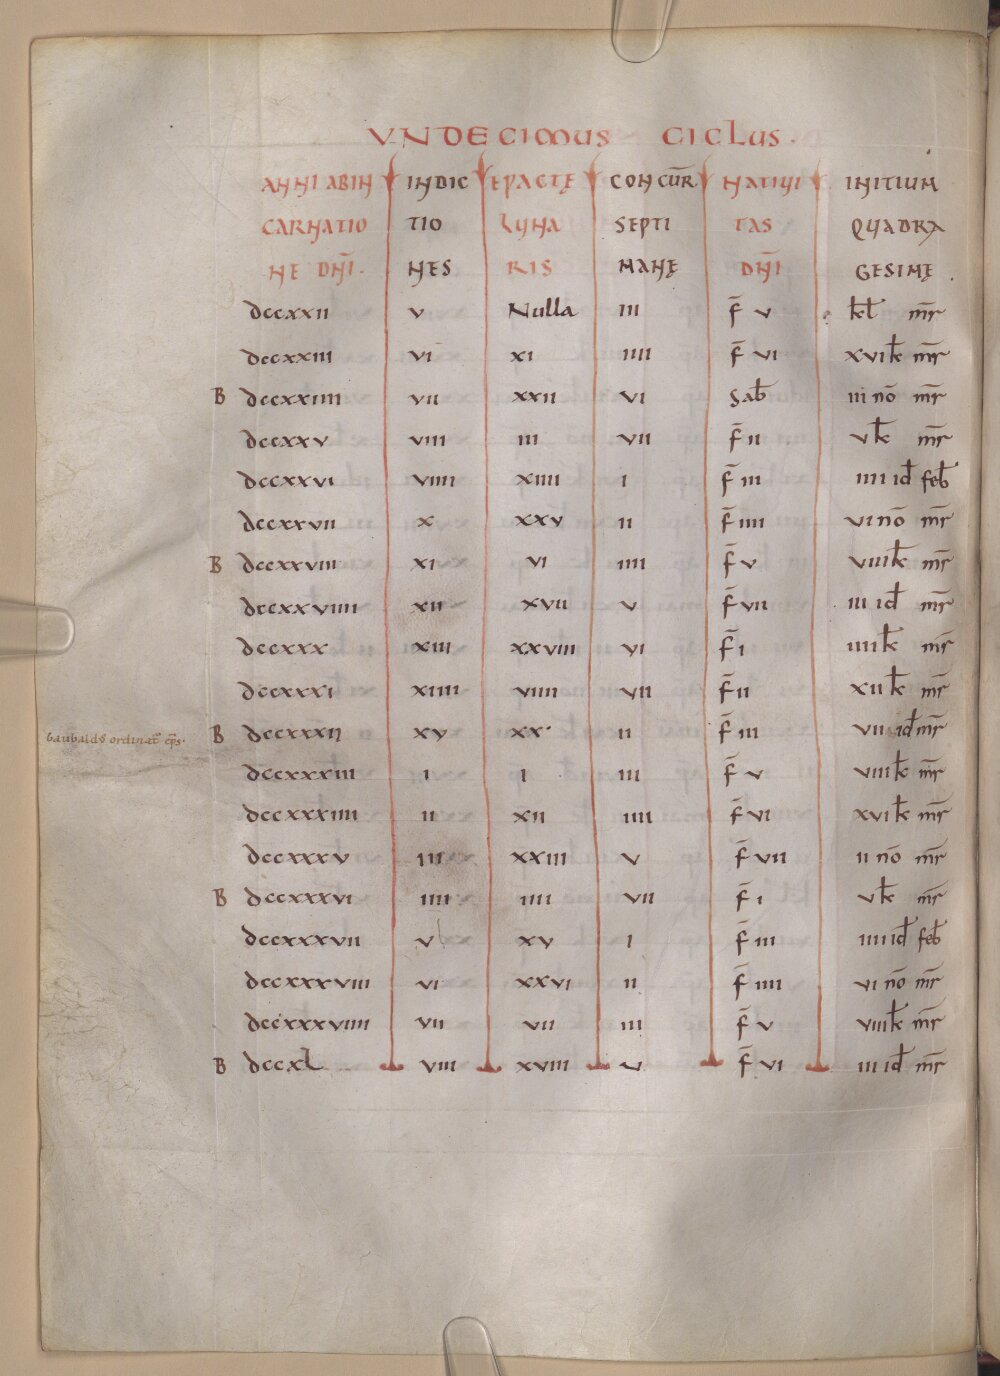 VNDECIMUS CICLUS.
ANNI ABIN INDIC EPACTĘ CONCUR̄ NATIVI INITIUM
CARNATIO TIO LUNA SEPTI TAS QUADRA
NE DN̄I. NES RIS MANĘ DN̄I GESIMĘ.
dccxxii v Nulla iii f̄ v kl̄ mr̄
dccxxiii vi xi iiii f̄ vi xvi k̄ mr̄
B dccxxiiii vii xxii vi sab̄ iii nō mr̄
dccxxv viii iii vii f̄ ii v k̄ mr̄
dccxxvi viiii xiiii i f̄ iii iiii id̄ feb̄
dccxxvii x xxv ii f̄ iiii vi nō mr̄
B dccxxviii xi vi iiii f̄ v viiii k̄ mr̄
dccxxviiii xii xvii v f̄ vii iii id̄ mr̄
dccxxx xiii xxviii vi f̄ i iiii k̄ mr̄
dccxxxi xiiii viiii vii f̄ ii xii k̄ mr̄
baubaldꝰ ordinat᷒ ep̄s. B dccxxxii xv xx· ii f̄ iii vii id̄ mr̄
dccxxxiii i i iii f̄ v viiii k̄ mr̄
dccxxxiiii ii xii iiii f̄ vi xvi k̄ mr̄
dccxxxv iii xxiii v f̄ vii ii nō mr̄
B dccxxxvi iiii iiii vii f̄ i v k̄ mr̄
dccxxxvii v xv i f̄ iii iiii id̄ feb̄
dccxxxviii vi xxvi ii f̄ iiii vi nō mr̄
dccxxxviiii vii vii iii f̄ v viiii k̄ mr̄
B dccxl viii xviii v f̄ vi iii id̄ mr̄